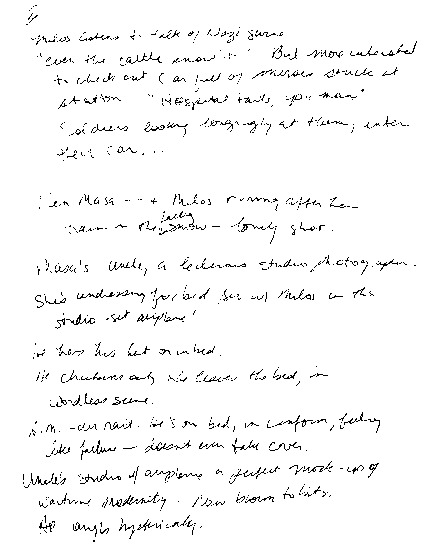 Milos listens to talk of Nazi guns
"even the cattle know it" But more interested
to check out car full of nurses stuck at
station "Hospital train, you man"
Soldiers looking longingly at them, enter
their car...
Masa -- + Milos running after her
train in the falling snow - lovely shot.
Masa's uncle, a lecherous studio photographer.
She's undressing for bed w/ Milos in the
studio - set airplane!
He has his hat on in bed.
only she leaves the bed, in
wordless scene.
A.M. - air raid. He's on bed, in uniform, feeling
like failure - doesn't even take cover.
Uncle's studio w/ airplane a perfect mock-up of
wartime modernity. Now blown to bits.
He laughs hysterically.